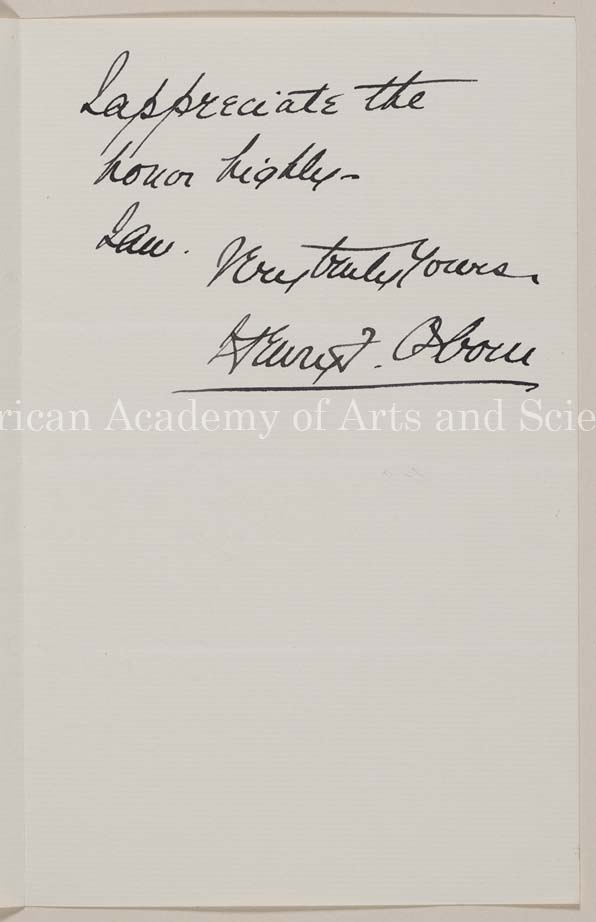 I appreciate the
honor highly-
I am.
Very truly Yours.
Henry F. Osborn
rican Academy of Arts and Scie